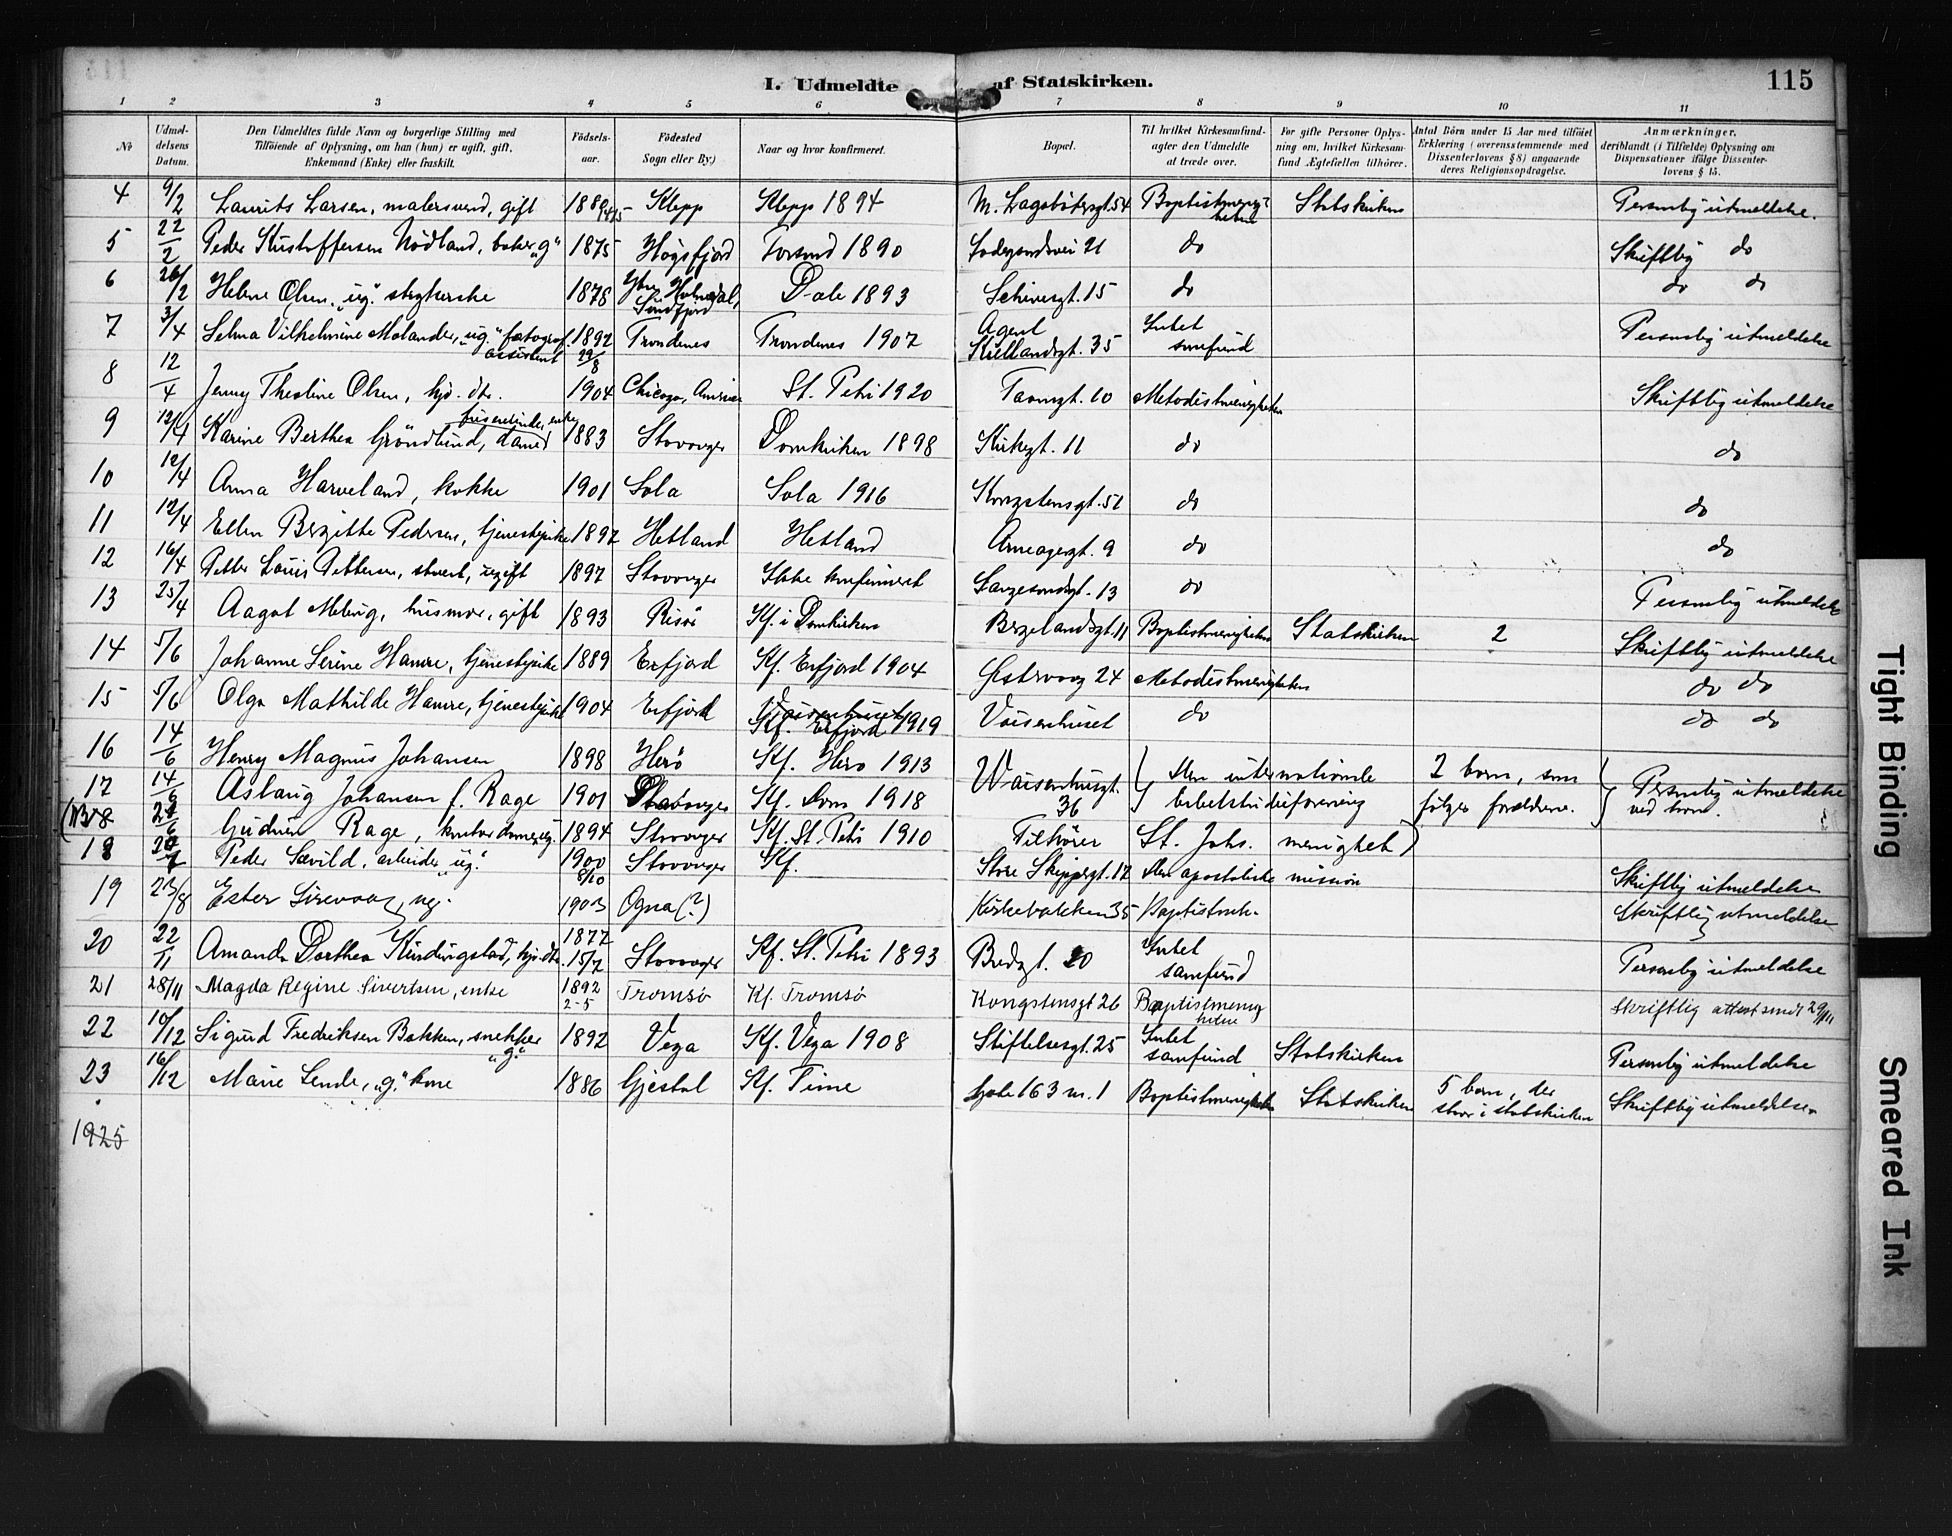 115
I. Udmeldte af Statskirken.
1 2 3 4 5 6 7 8 9 10 11
No
Udmeldelsens Datum.
Den Udmeldtes fulde Navn og borgerlige Stilling med
Tilføiende af Oplysning, om han (hun) er ugift, gift,
Enkemand (Enke) eller fraskilt.
Födselsaar.
Födested
Sogn eller By.)
Naar og hvor konfirmeret.
Bopæl.
Til hvilket Kirkesamfund
agter den Udmeldte
at træde over.
For gifte Personer Oplysning om, hvilket Kirkesamfund Ægtefællen tilhörer.
Antal Börn under 15 Aar med tilföiet
Erklæring (overensstemmende med
Dissenterlovens § 8) angaaende
deres Religionsopdragelse.
Anmærkninger,
deriblandt (i Tilfælde) Oplysning om
Dispensationer ifölge Dissenterlovens § 15.
4 9/2 Laurits Larsen, malersvend, gift 1880 Klepp Klepp 1894 54 Baptistmenigheten Statskirken Personlig utmeldelse.
5 22/2 Peder Kristoffersen Nödland, baker "g" 1875 Högsfjord Forsand 1890 21 do Skriftlig do
6 26/2 Helene Olsen, "ug." strykerske 1878 Ytre Holmedal, Söndfjord Dale 1893 15 do do do
7 3/4 Selma Vilhelmine Molander, "ug." fotograf assistent 1892 29/8 Trondenes Trondenes 1907 Agent Kiellandsgt. 35 Intet samfund Personlig utmeldelse
8 12/4 Jenny Theoline Olsen, hjv. dtr. 1904 Chicago, Amerika St. Petri 1920 10 Metodistmenigheten Skriftlig utmeldelse
9 12/4 Karine Berthea Gröndlund, damefriserinde, enke 1883 Stavanger Domkirken 1898 Kirkegt. 11 do do
10 12/4 Anna Harveland, kokke 1901 Sola Sola 1916 Kongstensgt. 51 do do
11 12/4 Ellen Birgitte Pedersen, tjenestepike 1897 Hetland Hetland Arneagergt. 9 do do
12 16/4 Petter Louis Pettersen, stuert, ugift 1897 Stavanger Ikke konfirmert 13 do Personlig utmeldelse
13 25/4 Aagot Meling, husmor, gift 1893 Risör Kf. i Domkirken Bergelandsgt. 11 Baptistmenigheten Statskirken 2 Skriftlig utmeldelse
14 5/6 Johanne Serine Hamre, tjenestepike 1889 Erfjord Kf. Erfjord 1904 Östervaag 24 Metodistmenigheten do do
15 5/6 Olga Mathilde Hamre, tjenestepike 1904 Erfjord Kf. Erfjord 1919 Vaisenhuset do do do
16 14/6 Henry Magnus Johansen 1898 Herö Kf. Herö 1913
17 14/6 Aslaug Johansen f. Rage 1901 Stavanger Kf. Dom 1918
Waisenhusgt. 36 Den internationale 2 barn, som følger forældrene. Personlig utmeldelse ved
(NB 8 Gudrun Rage, kontordame, ug. 1894 Stavanger Kf. St. Petri 1910 Tilhörer St. Johs. menighet)
18 20/7 Peder Sævild, arbeider "ug." 1900 8/10 Stavanger Kf. Store Skippergt. 12 Den apostoliske mission Skriftlig utmeldelse
19 23/8 Ester Sirevaag, ug. 1903 Ogna (?) Kirkebakken 35 Skriftlig utmeldelse
20 22/11 Amanda Dorthea Kindingstad, hjv. dtr. 1877 15/7 Stavanger Kf. St. Petri 1893 Bredgt. 20 Intet samfund Personlig utmeldelse
21 28/11 Magda Regine Sivertsen, enke 1892 2-5 Tromsö Kf. Tromsö Kongstensgt 26 Baptistmenigheten Skriftlig attest sendt 29/11
22 10/12 Sigurd Fredriksen Bakken, snekker "g." 1892 Vega Kf. Vega 1908 Stiftelsesgt. 25 Intet samfund Statskirken Personlig utmeldelse
23 16/12 Marie Lende, "g." kone 1886 Gjestal Kf. Time 163 m. 1 Baptistmenigheten Statskirken 5 barn, der staar i statskirken Skriftlig utmeldelse.
1925
Tight Binding
Smeared Ink